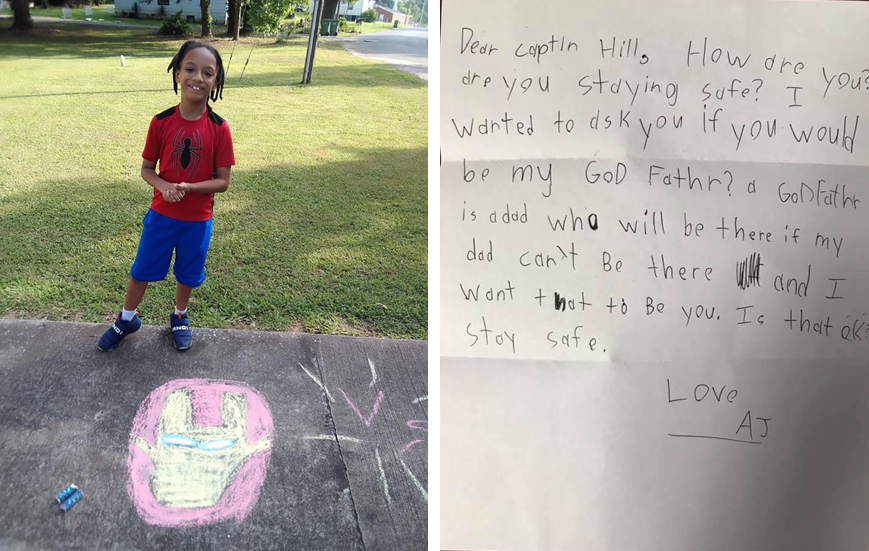 Dear Captin Hill, How are you?
are you staying safe? I
wanted to ask you if you would
be my GoD Fathr? a GoDFathr
is a dad who will be there if my
dad can't Be there and I
want that to Be you. Is that ok?
stay safe.
Love
AJ